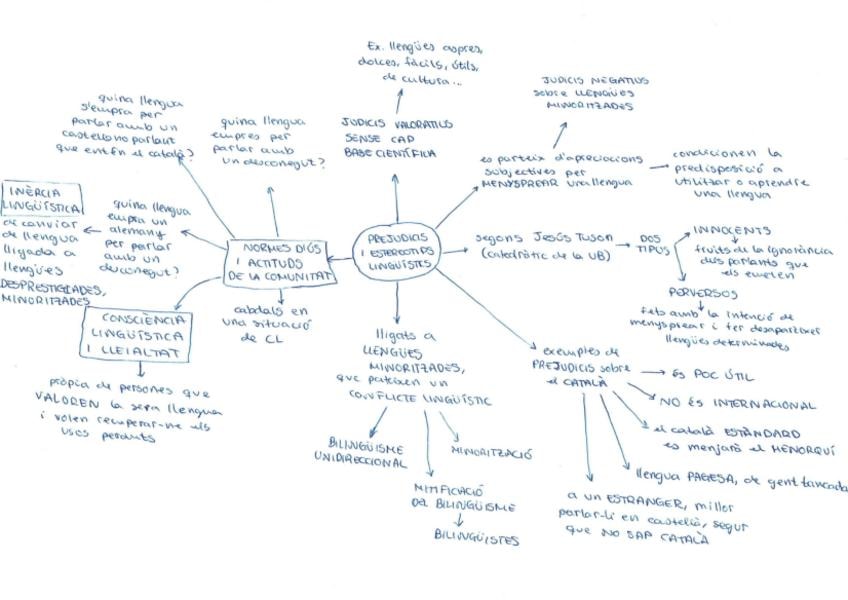 Ex. llengües aspres,
dolces, fàcils, útils,
de cultura...
JUDICIS VALORATIUS
SENSE CAP
BASE CIENTÍFICA
JUDICIS NEGATIUS
sobre LLENGÜES
MINORITZADES
es parteix d'apreciacions
subjectives per
MENYSPREAR una llengua
condicionen la
predisposició a
utilitzar o aprendre
una llengua
quina llengua
s'empra per
parlar amb un
castellanoparlant
que entén el català?
quina llengua
empres per
parlar amb
un desconegut?
INÈRCIA
LINGÜÍSTICA
de canviar
de llengua
lligada a
llengües
DESPRESTIGIADES,
MINORITZADES
quina llengua
empra un
alemany
per parlar
amb un
desconegut?
NORMES D'ÚS
I ACTITUDS
DE LA COMUNITAT
PREJUDICIS
I ESTEREOTIPS
LINGÜÍSTICS
segons Jesús Tuson
(catedràtic de la UB)
DOS
TIPUS
INNOCENTS
fruits de la ignorància
dels parlants que
els emeten
PERVERSOS
fets amb la intenció de
menysprear i fer desaparèixer
llengües determinades
cabdals en
una situació
de CL
CONSCIÈNCIA
LINGÜÍSTICA
I LLEIALTAT
pròpia de persones que
VALOREN la seva llengua
i volen recuperar-ne els
usos perduts
lligats a
LLENGÜES
MINORITZADES,
que pateixen un
CONFLICTE LINGÜÍSTIC
BILINGÜISME
UNIDIRECCIONAL
MINORITZACIÓ
MITIFICACIÓ
DEL BILINGÜISME
BILINGÜISTES
exemples de
PREJUDICIS sobre
el CATALÀ
és POC ÚTIL
NO ÉS INTERNACIONAL
el català ESTÀNDARD
es menjarà el MENORQUÍ
llengua PAGESA, de gent tancada
a un ESTRANGER, millor
parlar-li en castellà, segur
que NO SAP CATALÀ